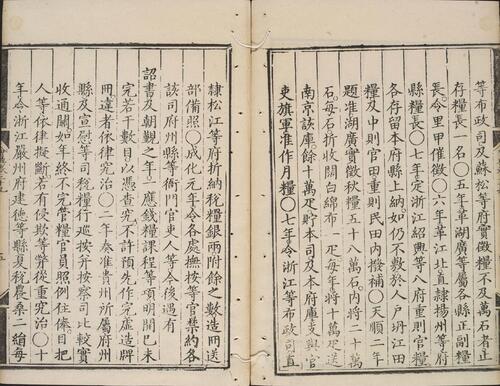 等布政司及蘇松等府實徵糧不及萬石者止
存糧長一名〇五年革湖廣等屬各縣正副糧
長令里甲催徵〇六年革江北直隸揚州等府
縣糧長〇七年定浙江紹興等八府重則官糧
各存留本府縣上納如仍不敷於人戶坍江田
糧及中則官田重則民田內撥補〇天順二年
題准湖廣實徵秋糧五十八萬石內將二十萬
石每石折收闊白綿布一疋每年將十萬疋送
南京該庫餘十萬疋貯本司及本府庫支與官
吏旗軍准作月糧〇七年令浙江等布政司直
隸松江等府折納稅糧銀兩附餘之數造冊送
部備照〇成化元年令各處撫按等官禁約各
該司府州縣等衙門官吏人等今後遇有
詔書及朝覲之年一應錢糧課程等項明開已未
完若干數目以憑查究不許預先作完虛造牌
冊違者依律究治〇二年奏准貴州所屬府州
縣及宣慰等司稅糧行巡按并按察司比較實
收通關如年終不完管糧官員照例住俸目把
人等依律擬斷若有侵欺等弊從重究治〇十
年令浙江嚴州府建德等縣夏稅農桑二絹每